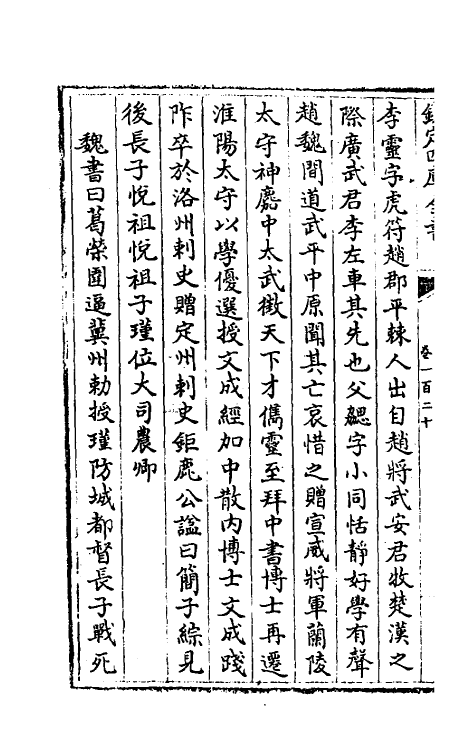 欽定四庫全書
卷一百二十
李靈字虎符趙郡平棘人出自趙將武安君牧楚漢之
際廣武君李左車其先也父勰字小同恬靜好學有聲
趙魏間道武平中原聞其亡哀惜之贈宣威將軍蘭陵
太守神䴥中太武徵天下才儁靈至拜中書博士再遷
淮陽太守以學優選授文成經加中散内博士文成踐
阼卒於洛州刺史贈定州刺史鉅鹿公諡曰簡子綜見
後長子恱祖恱祖子瑾位大司農卿
魏書曰葛榮圍逼冀州勅授瑾防城都督長子戰死